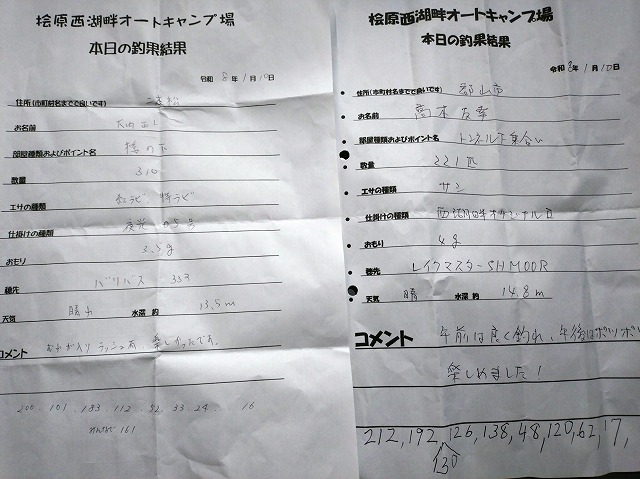 桧原西湖畔オートキャンプ場
本日の釣果結果
令和 8年 1月 10日
住所(市町村名までで良いです) 二本松
お名前
部屋種類およびポイント名 橋の下
数量 310
エサの種類 紅ラビ 特ラビ
仕掛けの種類
おもり 3.5g
穂先 バリバス 333
天気 晴れ 水深 約 13.5m
コメント 楽しかったです。
200. 101. 183. 112. 52. 33. 24. 16
161
桧原西湖畔オートキャンプ場
本日の釣果結果
令和 8年 1月 10日
住所(市町村名までで良いです) 郡山市
お名前 高木友幸
部屋種類およびポイント名 トンネル下集合い
数量 221匹
エサの種類 サシ
仕掛けの種類 西湖畔オリジナル
おもり 4g
穂先 レイクマスターSH M00R
天気 晴 水深 約 14.8m
コメント 午前は良く釣れ、午後はポツポツ
楽しめました!
212, 192, 126, 138, 48, 120, 62, 17,
130